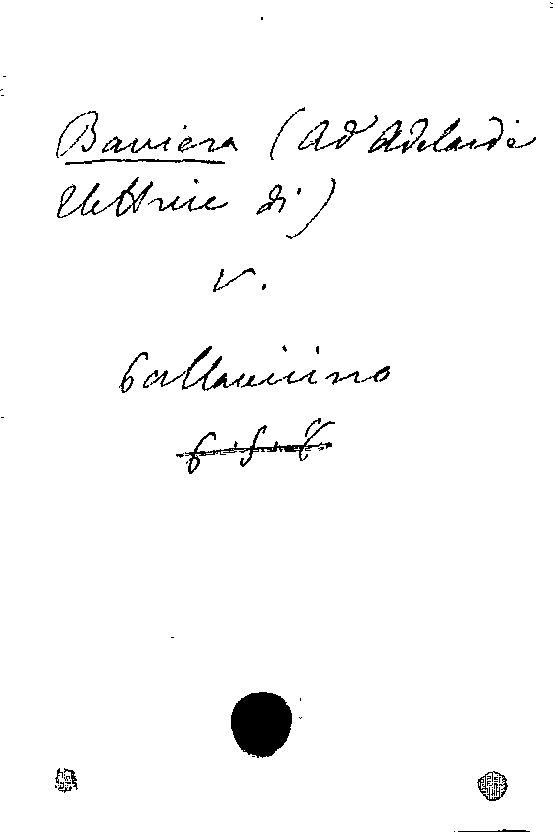 Baviera (Ad Adelaide
Elettrice di)
V.
Pallavicino